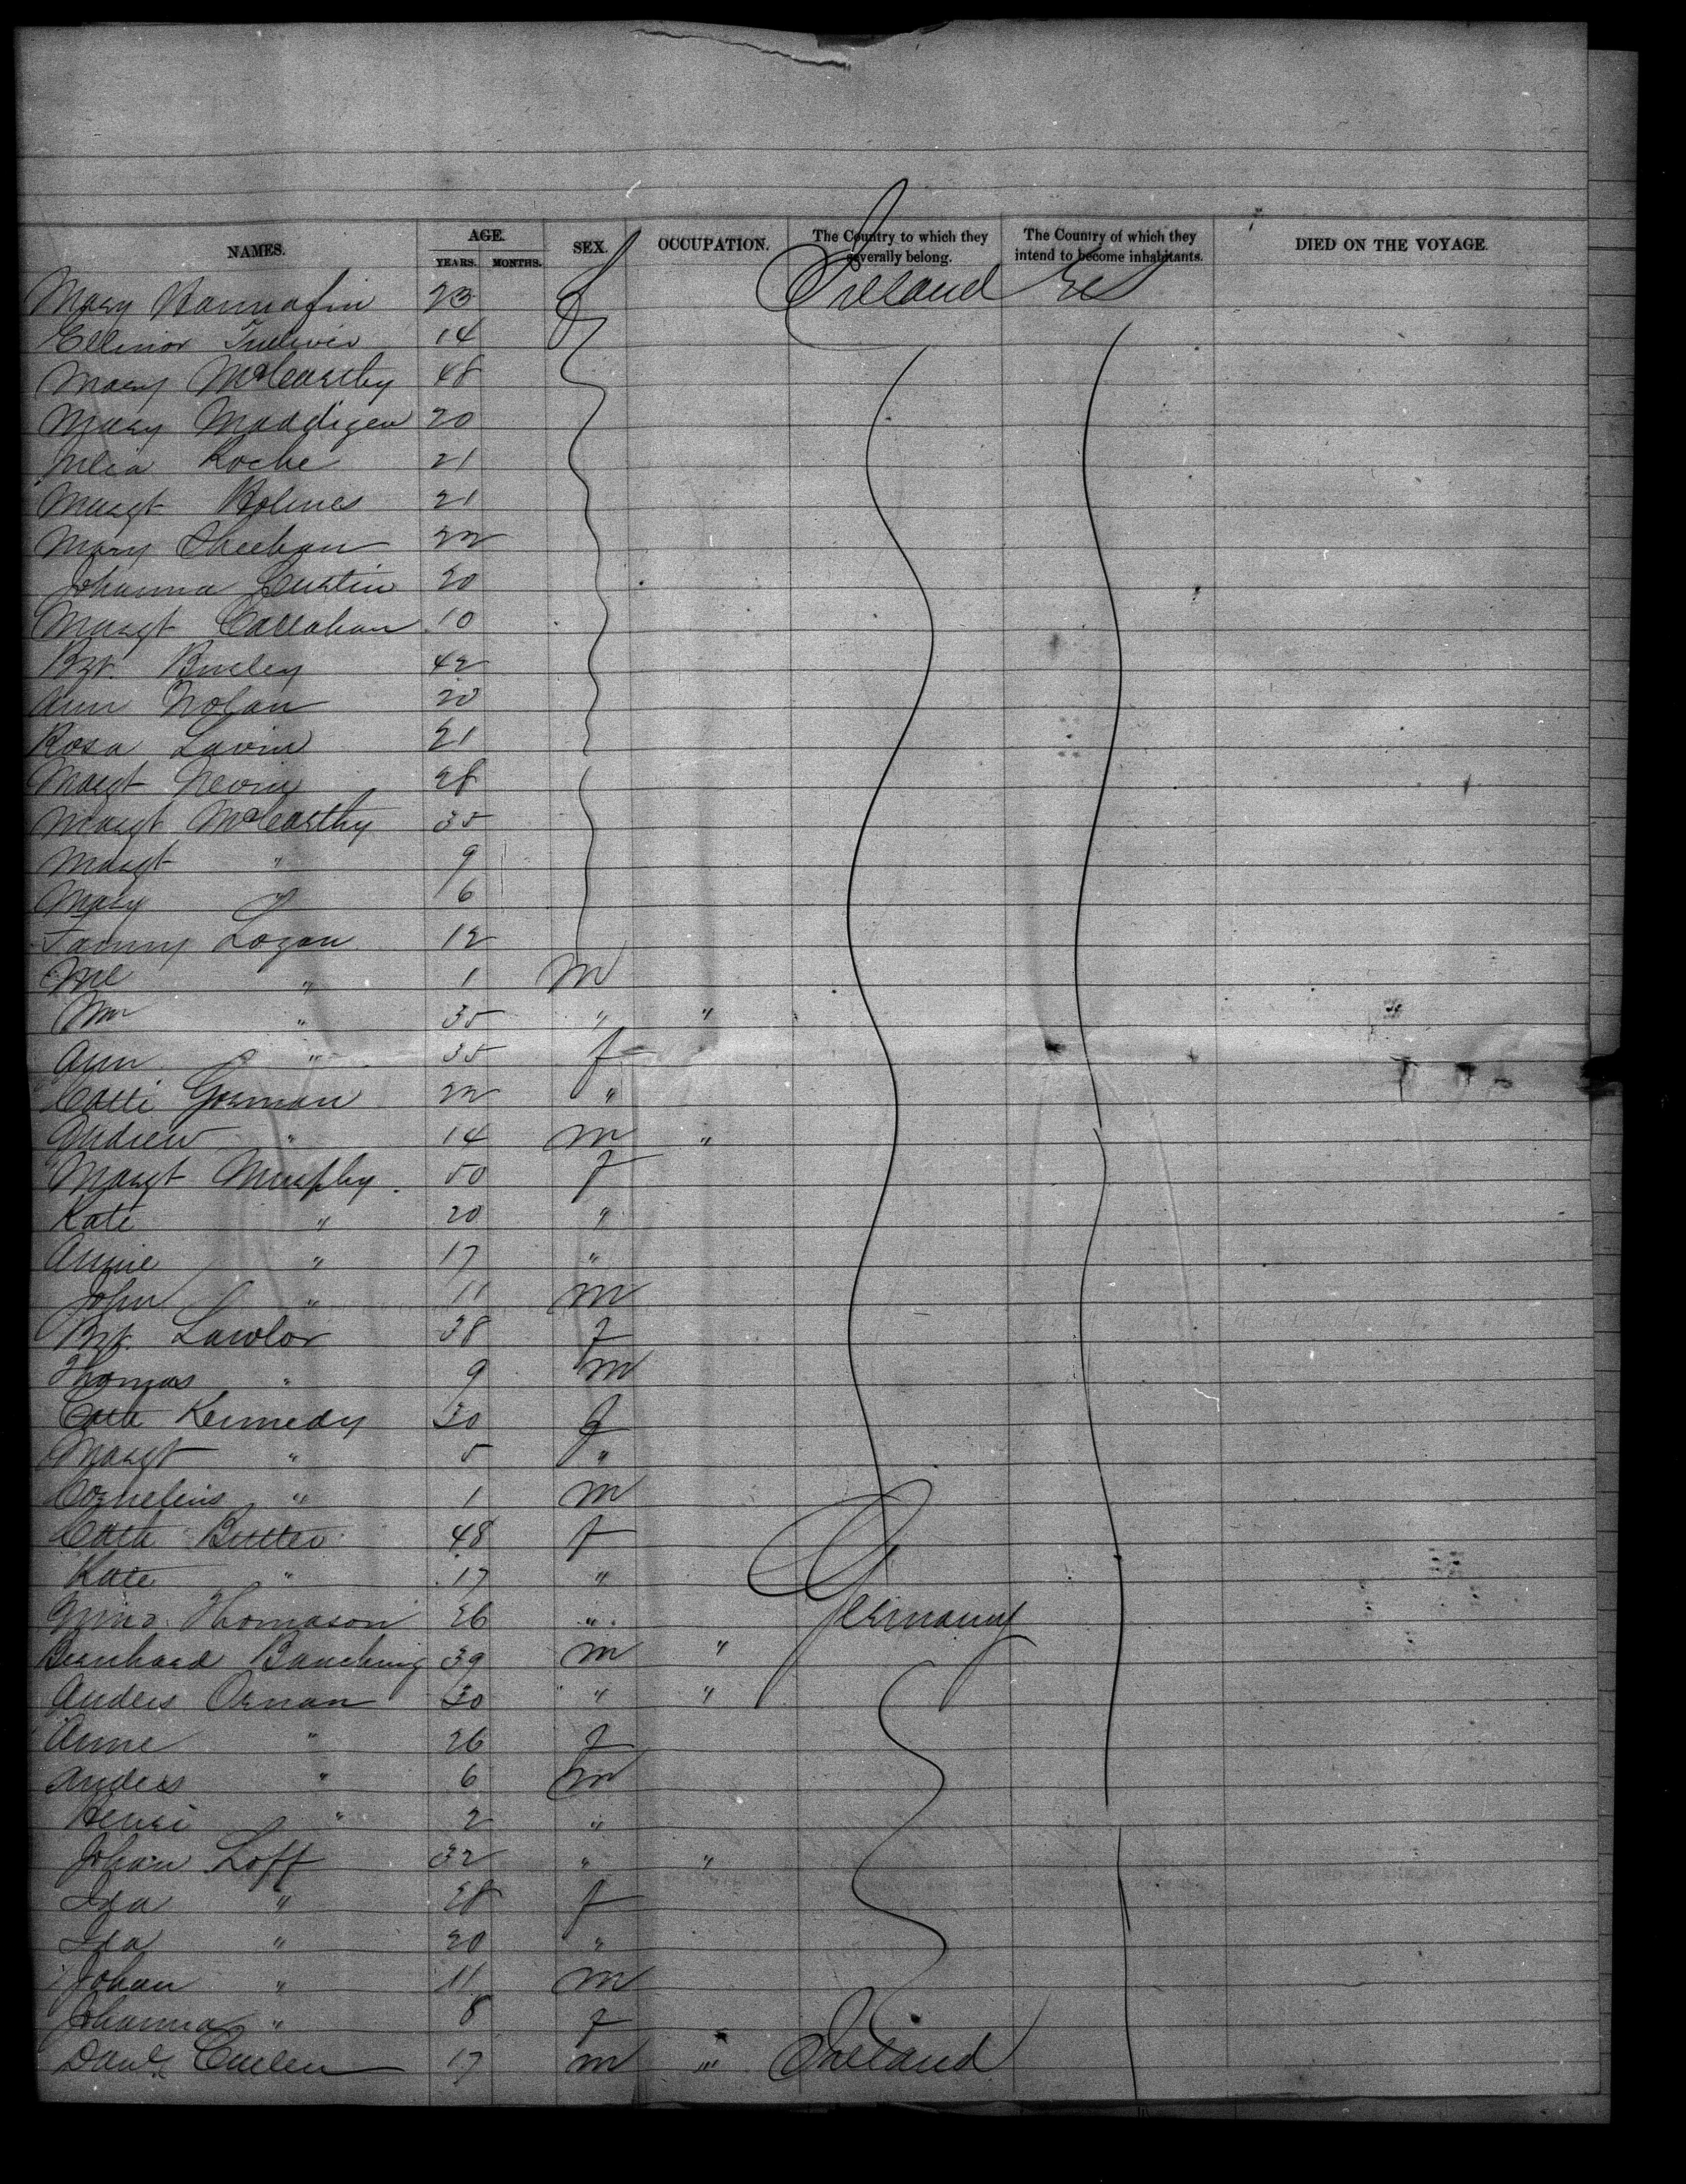 NAMES. AGE. SEX. OCCUPATION. The Country to which they severally belong. The Country of which they intend to become inhabitants. DIED ON THE VOYAGE.
YEARS. MONTHS.
Mary Hannafin 23 f Ireland
Ellinor 14
Mary McCarthy 48
Mary Maddigen 20
Julia Roche 21
Margt Holmes 21
Mary Sheehan 22
Johanna Curtin 20
Margt Callahan 10
Bgt. 42
Ann Nolan 20
Rosa Lavin 21
Margt Nevin 28
Margt McCarthy 35
Margt " 9
Mary " 6
Fanny Logan 12
Ml " 1 M
Wm " 35 " "
Ann " 35 f
Cath Gorman 22 "
Andrew " 14 M "
Margt Murphy. 50 f
Kate " 20 "
Annie " 17 "
John " 11 M
Bgt. Lawlor 38 f
Thomas " 9 M
Cath Kennedy 30 f
Margt " 5 "
Cornelius " 1 M
Cath Butler 48 f
Kate " 17 "
Thomason 26 " Germany
Bernhard 39 M "
Anders Orman 30 " "
Anne " 26 f
Anders " 6 M
Henri " 2 "
Johan Loff 32 " "
Ida " 28 f
Ida " 20 "
Johan " 11 M
Johanna " 8 f
Danl. Cullen 17 M " Ireland